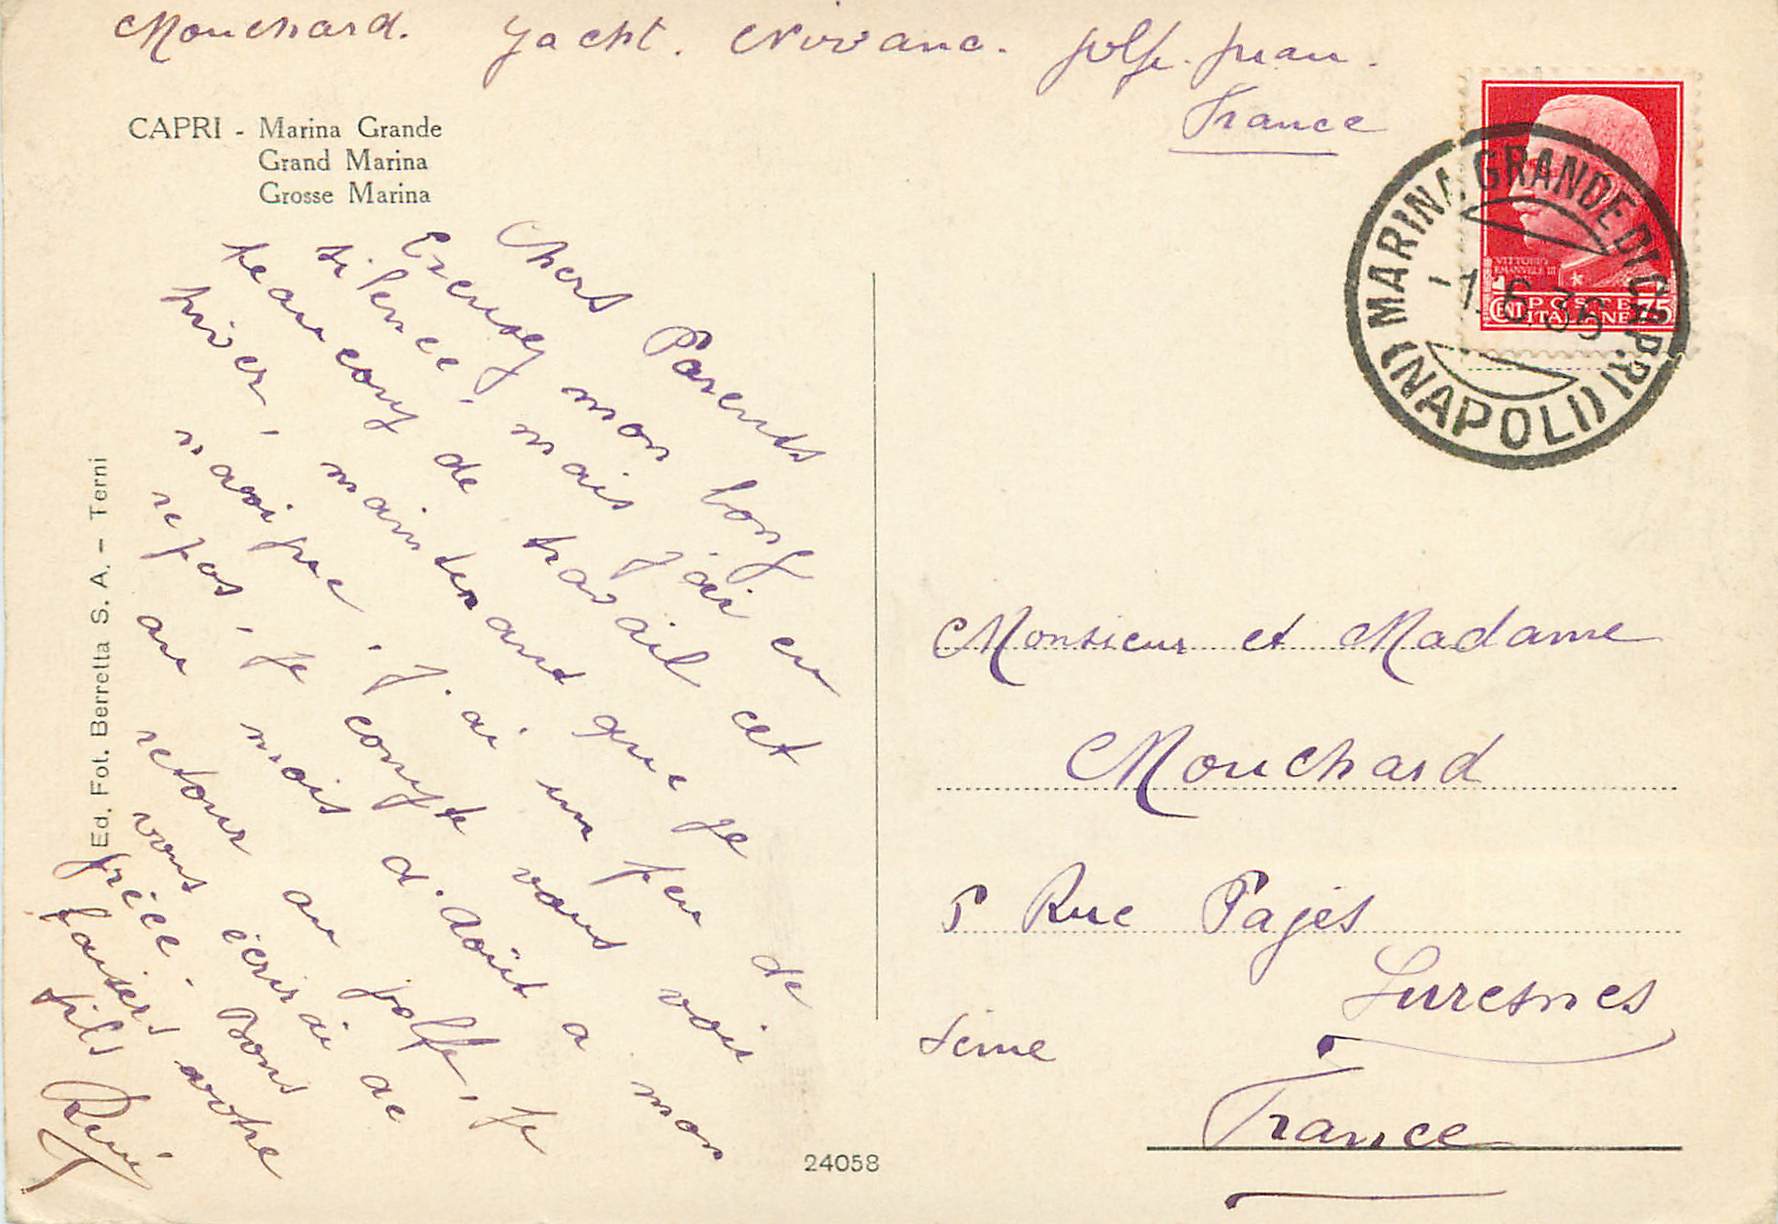 Mouchard. Yacht. Nirvana. golfe. juan.
France
CAPRI - Marina Grande
Grand Marina
Grosse Marina
MARINA GRANDE DI CAPRI
(NAPOLI)
1.6.36
VITTORIO
EMANVELE III
POSTE
ITALIANE
CENT 75
Chers Parents
Excusez mon long
silence, mais j'ai eu
beaucoup de travail cet
hiver, maintenant que je
navigue, j'ai un peu de
repos, je compte vous voir
au mois d'Août a mon
retour au golfe, je
vous écrirai de
Bons
baisers votre
fils
René
Ed. Fot. Berretta S. A. - Terni
24058
Monsieur et Madame
Mouchard
Rue Pagès
Suresnes
Seine
France